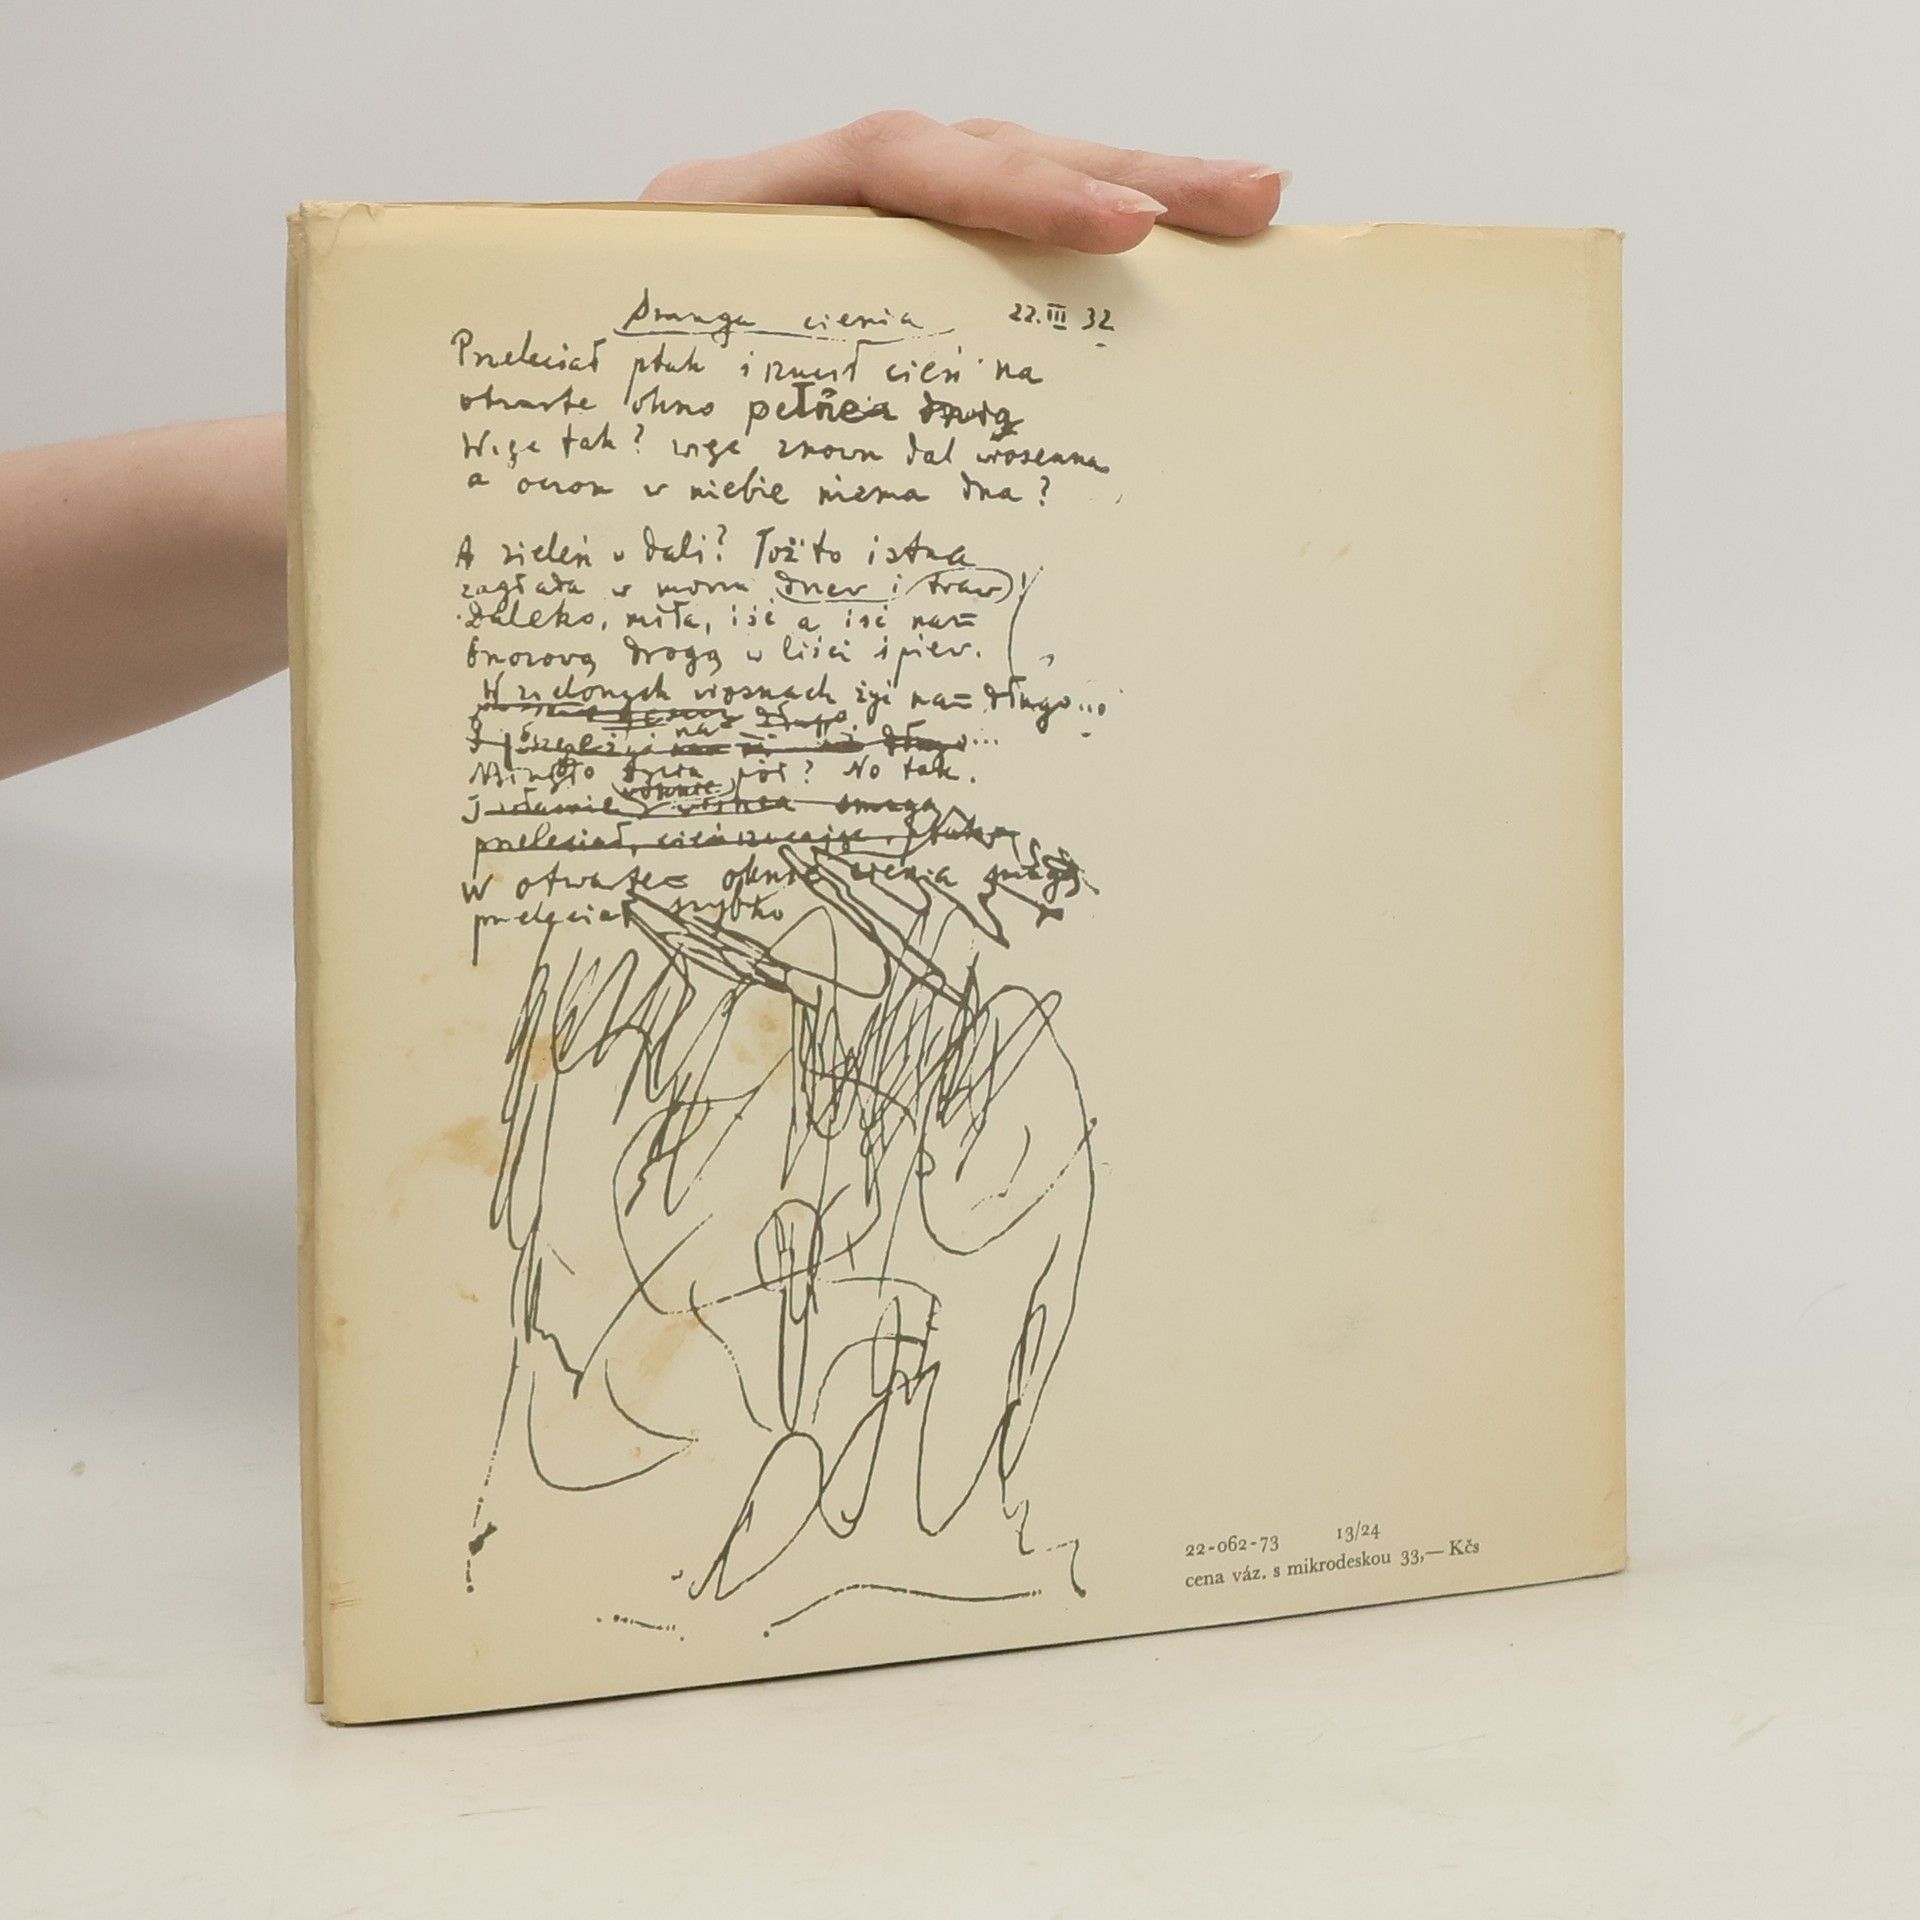 Smuga cienia 22.III 32
Przeleciał ptak i rzucił cień na
otwarte okno pełne drżą
Więc tak? więc znowu dal wiosenna
a oczom w niebie niema dna?
A zieleń w dali? Toż to istna
zagłada w morzu drzew i traw!
Daleko, miła, iść a iść nam
drogą w liści śpiew.
W zielonych wiosnach żyć nam długo...
nam długo
I długo...
Minęło dnia pół? No tak.
I właśnie smugą
przeleciał, cień rzucając, ptak
W otwartem oknie cienia smugą
przeleciał szybko
22-062-73 13/24
cena váz. s mikrodeskou 33,— Kčs